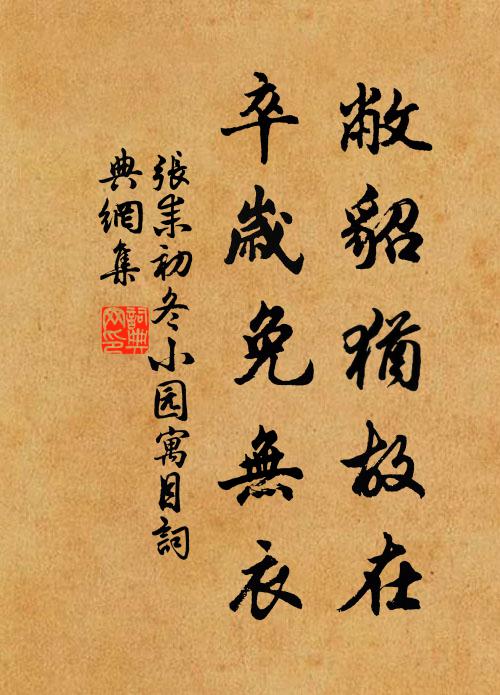 敝貂猶故在
卒歲免無衣
張耒初冬小园寓目詞
典網集
詞典
网印